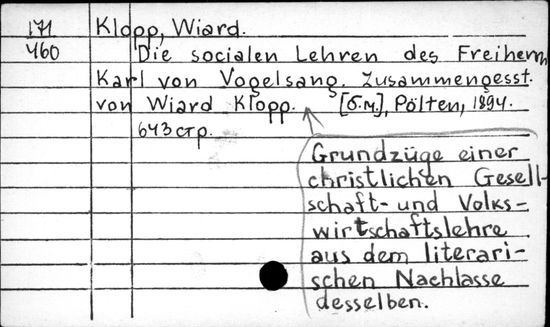 171 Klopp, Wiard.
460 Die socialen Lehren des Freiherrn
Karl von Vogelsang. Zusammengesst.
von Wiard Klopp. [б.м.], Pölten, 1894.
643 стр.
Grundzüge einer
christlichen Gesell-
schaft- und Volks-
wirtschaftslehre
aus dem literari-
schen Nachlasse
desselben.